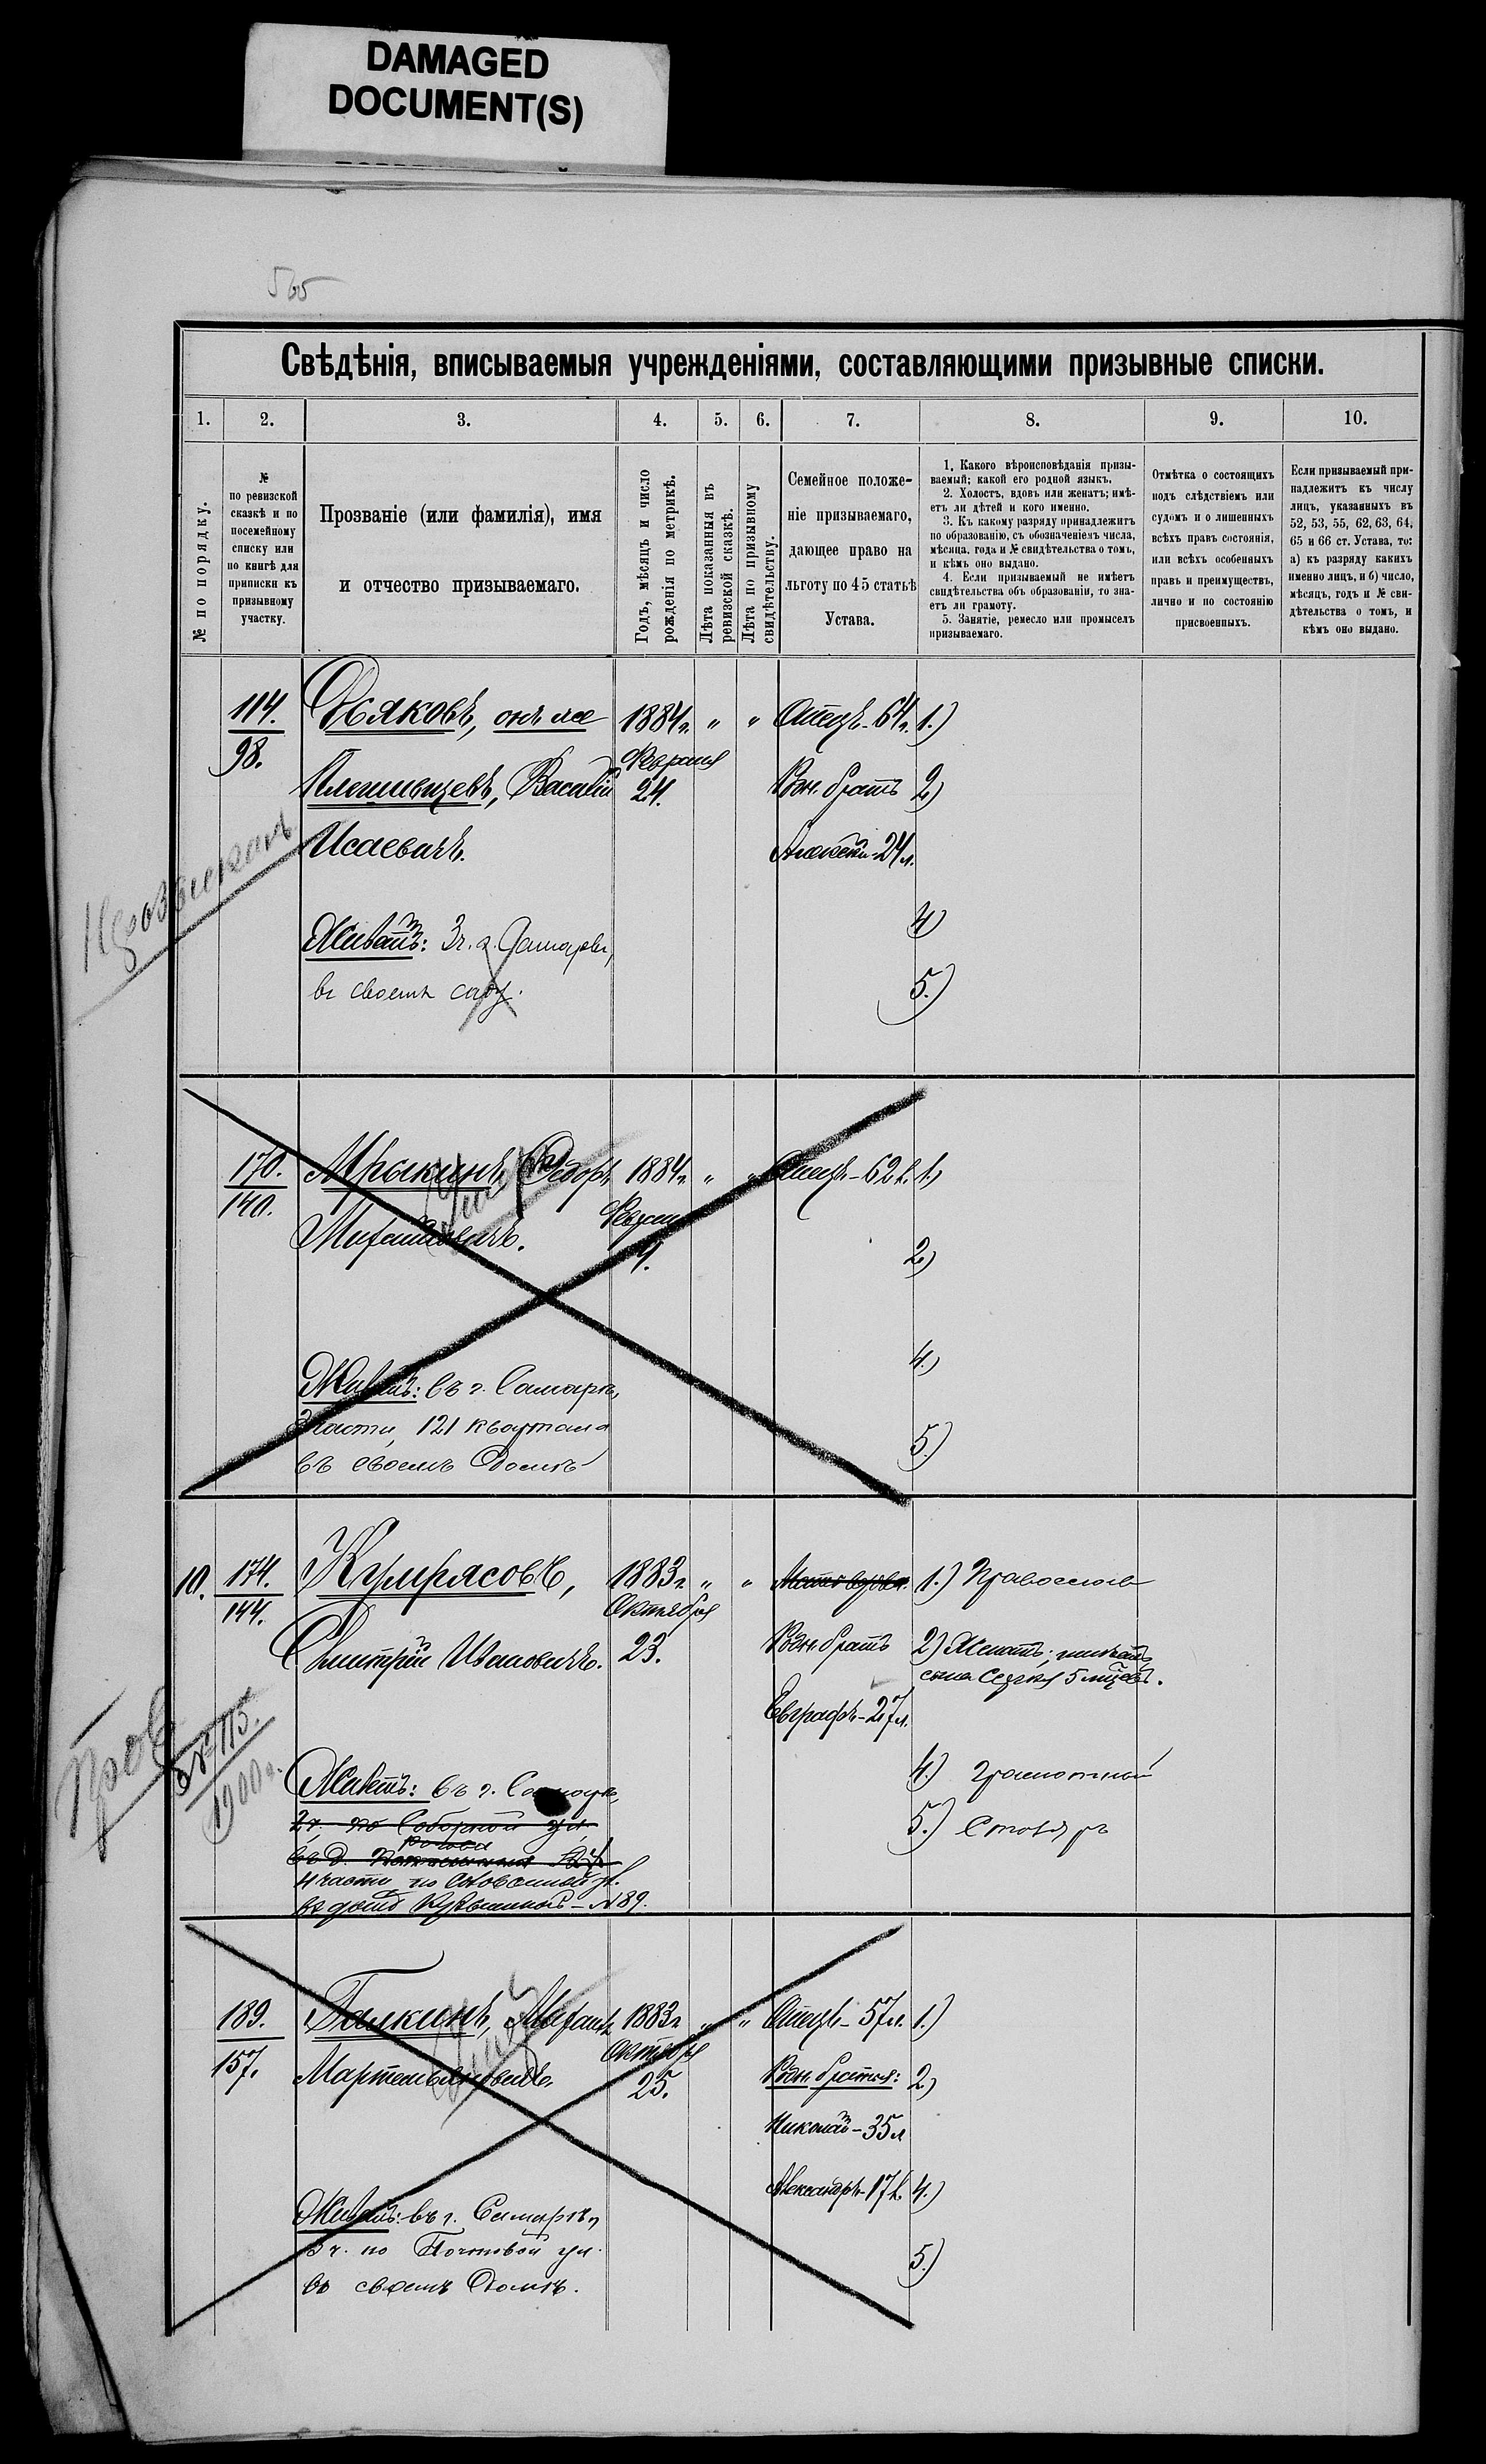 DAMAGED
DOCUMENT(S)
565
Свѣдѣнія, вписываемыя учрежденіями, составляющими призывные списки.
1. 2. 3. 4. 5. 6. 7. 8. 9. 10.
№ по порядку.
№
по ревизской
сказкѣ и по
посемейному
списку или
по книгѣ для
приписки къ
призывному
участку.
Прозваніе (или фамилія), имя
и отчество призываемаго.
Годъ, мѣсяцъ и число
рожденія по метрикѣ.
Лѣта показанныя въ
ревизской сказкѣ.
Лѣта по призывному
свидѣтельству.
Семейное положе-
ніе призываемаго,
дающее право на
льготу по 45 статьѣ
Устава.
1. Какого вѣроисповѣданія призы-
ваемый; какой его родной языкъ.
2. Холостъ, вдовъ или женатъ; имѣ-
етъ ли дѣтей и кого именно.
3. Къ какому разряду принадлежитъ
по образованію, съ обозначеніемъ числа,
мѣсяца, года и № свидѣтельства о томъ,
и кѣмъ оно выдано.
4. Если призываемый не имѣетъ
свидѣтельства объ образованіи, то зна-
етъ ли грамоту.
5. Занятіе, ремесло или промыселъ
призываемаго.
Отмѣтка о состоящихъ
подъ слѣдствіемъ или
судомъ и о лишенныхъ
всѣхъ правъ состоянія,
или всѣхъ особенныхъ
правъ и преимуществъ,
лично и по состоянію
присвоенныхъ.
Если призываемый при-
надлежитъ къ числу
лицъ, указанныхъ въ
52, 53, 55, 62, 63, 64,
65 и 66 ст. Устава, то:
а) къ разряду какихъ
именно лицъ, и б) число,
мѣсяцъ, годъ и № сви-
дѣтельства о томъ, и
кѣмъ оно выдано.
114. Дьяковъ, онъ же 1884г. " " Отецъ-64л. 1.)
98. Февраля
Василій 24. Родн. братъ 2)
Исаевичъ. Алексѣй-24л.
Живетъ: 3ч. г. Самары, 4)
въ своемъ саду. 5.)
170. Мрыкинъ, Ѳедоръ 1884г. " " Отецъ-62л. 1.)
140. Февраля
Михайловичъ. 4. 2.)
4.)
Живетъ: въ г. Самарѣ,
3 части, 121 квартала
въ своемъ домѣ 5)
10. 174. Кумрясовъ, 1883г. " " Мать вдова. 1.) Православн
144. Октября
Дмитрій Ивановичъ. 23. Родн. братъ 2) Женатъ; имѣетъ
сына Сергѣя 5 мѣсяцевъ.
Евграфъ-27л.
Пров
№ 115.
1900 г.
4.) Грамотный
Живетъ: въ г. Самарѣ,
2ч. по Соборной ул. 5.) Столяръ
въ д.
4 части по
въ домѣ - №89.
189. Галкинъ, Михаилъ 1883г. " " Отецъ-57л. 1.)
157. Октября
Мартемьяновичъ. 25. Родн. братья: 2)
Николай-35л
Александръ-17л. 4.)
Живетъ: въ г. Самарѣ,
3 ч. по Почтовой ул. 5.)
въ своемъ домѣ.